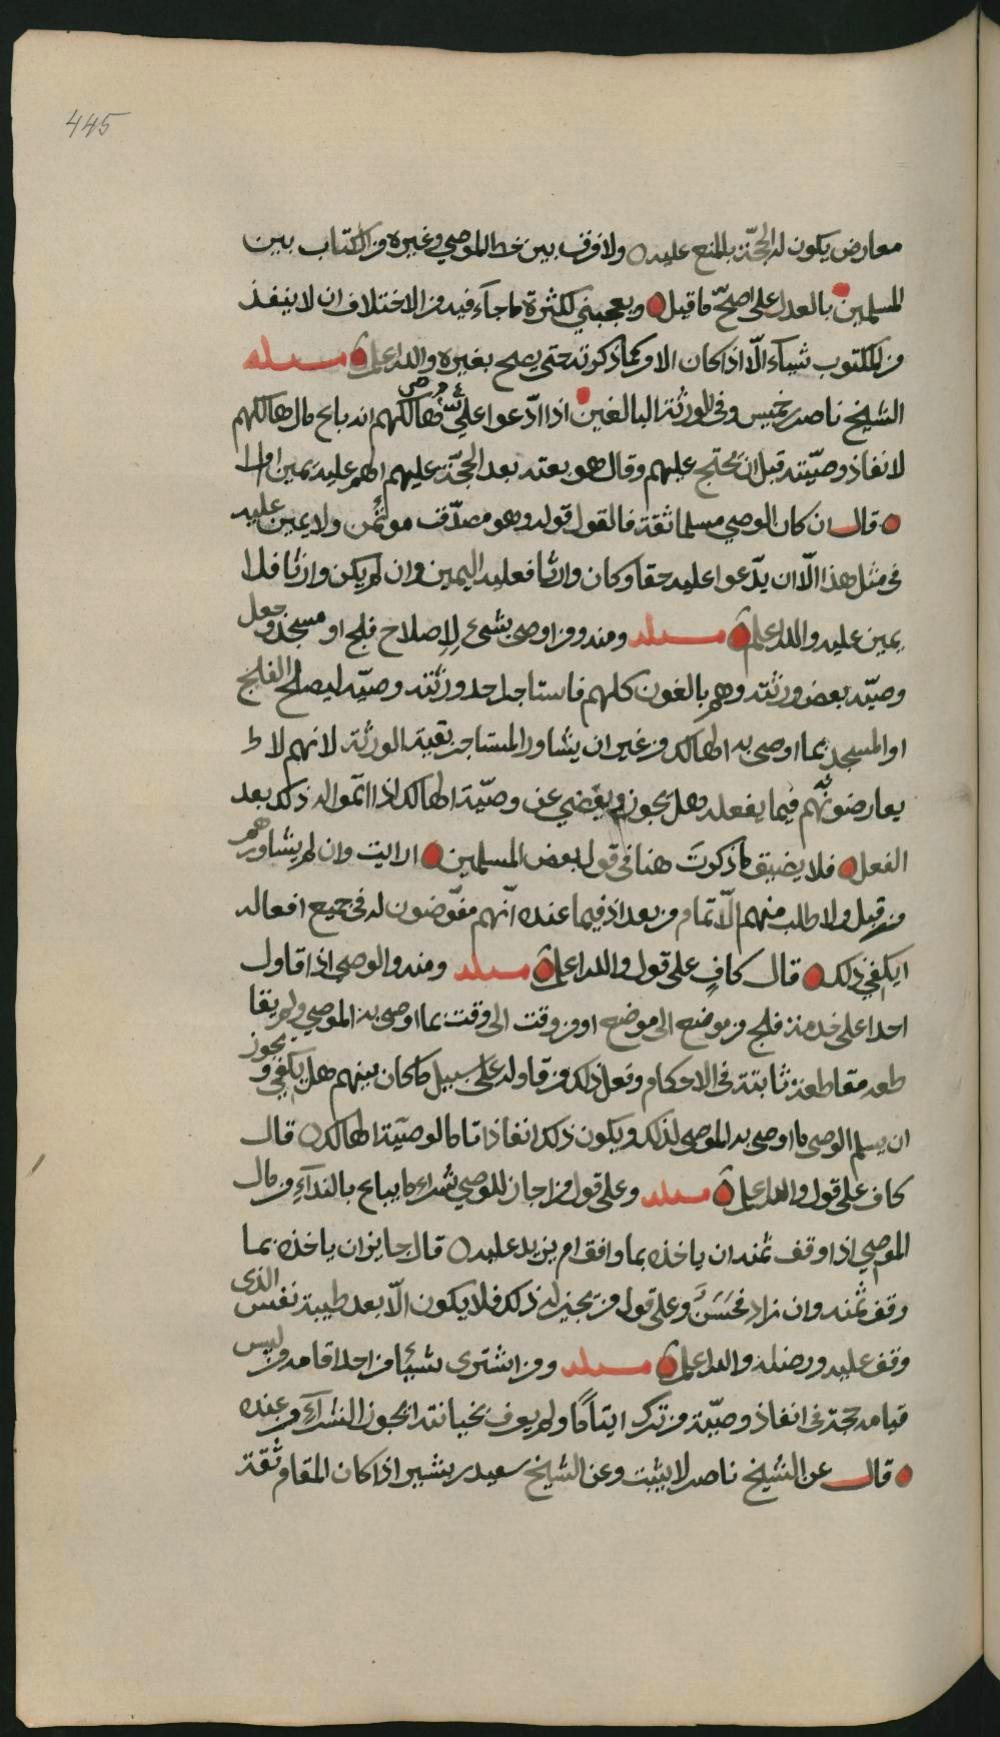 445
معارض يكون له الحجّة بالمنع عليه ولا فرق بين خط الموصي وغيره من الكتّاب بين
المسلمين بالعدل على اصحّ ما قيل ويعجبني لكثرة ما جآء فيه من الاختلاف ان لا ينفذ
من المكتوب شيئآء الّا اذا كان الامر كما ذكرته حتى يصح بغيره والله اعلم مسئله
الشيخ ناصر بن خميس وفي الورثة البالغين اذا ادّعوا على وصي هالكهم انه باع مال هالكهم
لانفاذ وصيّته قبل ان يحتج عليهم وقال هو بعته بعد الحجّة عليهم الهم عليه يمين ام لا
قال ان كان الوصي مسلما ثقة فالقول قوله وهو مصدّق مؤتمن ولا يمين عليه
في مثل هذا الّا ان يدّعوا عليه حقا وكان وارثا فعليه اليمين وان لم يكن وارثا فلا
يمين عليه والله اعلم مسئله ومنه ومن اوصى بشيء لإصلاح فلج او مسجد وجعل
وصيّه بعض ورثته وهم بالغون كلهم فاستاجر احد ورثته وصيّه ليصلح الفلج
او المسجد بما اوصى به الهالك من غير ان يشاور المستاجر بقية الورثة لانهم لا
يعارضونه فيما يفعله وهل يجوز ويقضي عن وصيّة الهالك اذا اتموا له ذلك بعد
الفعل فلا يضيق ما ذكرتَ هنا في قول بعض المسلمين ارايت وان لم يشاورهم
من قبل ولا طلب منهم الّاتمام من بعد اذ فيما عنده انّهم مفوّضون له في جميع افعاله
ايكفي ذلك قال كافٍ على قول والله اعلم مسئله ومنه والوصي اذا قاول
احدا على خدمة فلج من موضع الى موضع او من وقت الى وقت بما اوصى به الموصي ولم يقا
طعه مقاطعة ثابتة في الاحكام وفعل ذلك من قاوله على سبيل ما كان بينهم هل يكفي ويجوز
ان يسلم الوصي ما اوصى به الموصي لذلك ويكون ذلك انفاذا تاما لوصيّة الهالك قال
كاف على قول والله اعلم مسئله وعلى قول من اجاز للوصي شراء ما يباع بالندآء من مال
الموصي اذا وقف ثمنه ان ياخذه بما وافق ام يزيد عليه قال جايز ان ياخذه بما
وقف ثمنه وان زاد فحَسَنٌ وعلى قول من يجيز له ذلك فلا يكون الّا بعد طيبة نفس الذي
وقف عليه ورضاه والله اعلم مسئله ومن اشترى شيئا من احد اقامه من ليس
قيامه حجة في انفاذ وصيّة من ترك ايتامًا ولم يعرف بخيانته ايجوز الشرآء من عنده
قال عن الشيخ ناصر لا يثبت وعن الشيخ سعيد بن بشير اذا كان المقام ثقة